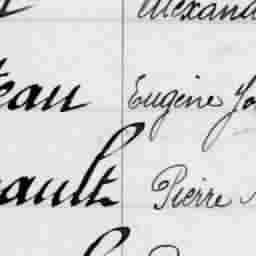 Alexand
eau Eugène Jo
ault Pierre